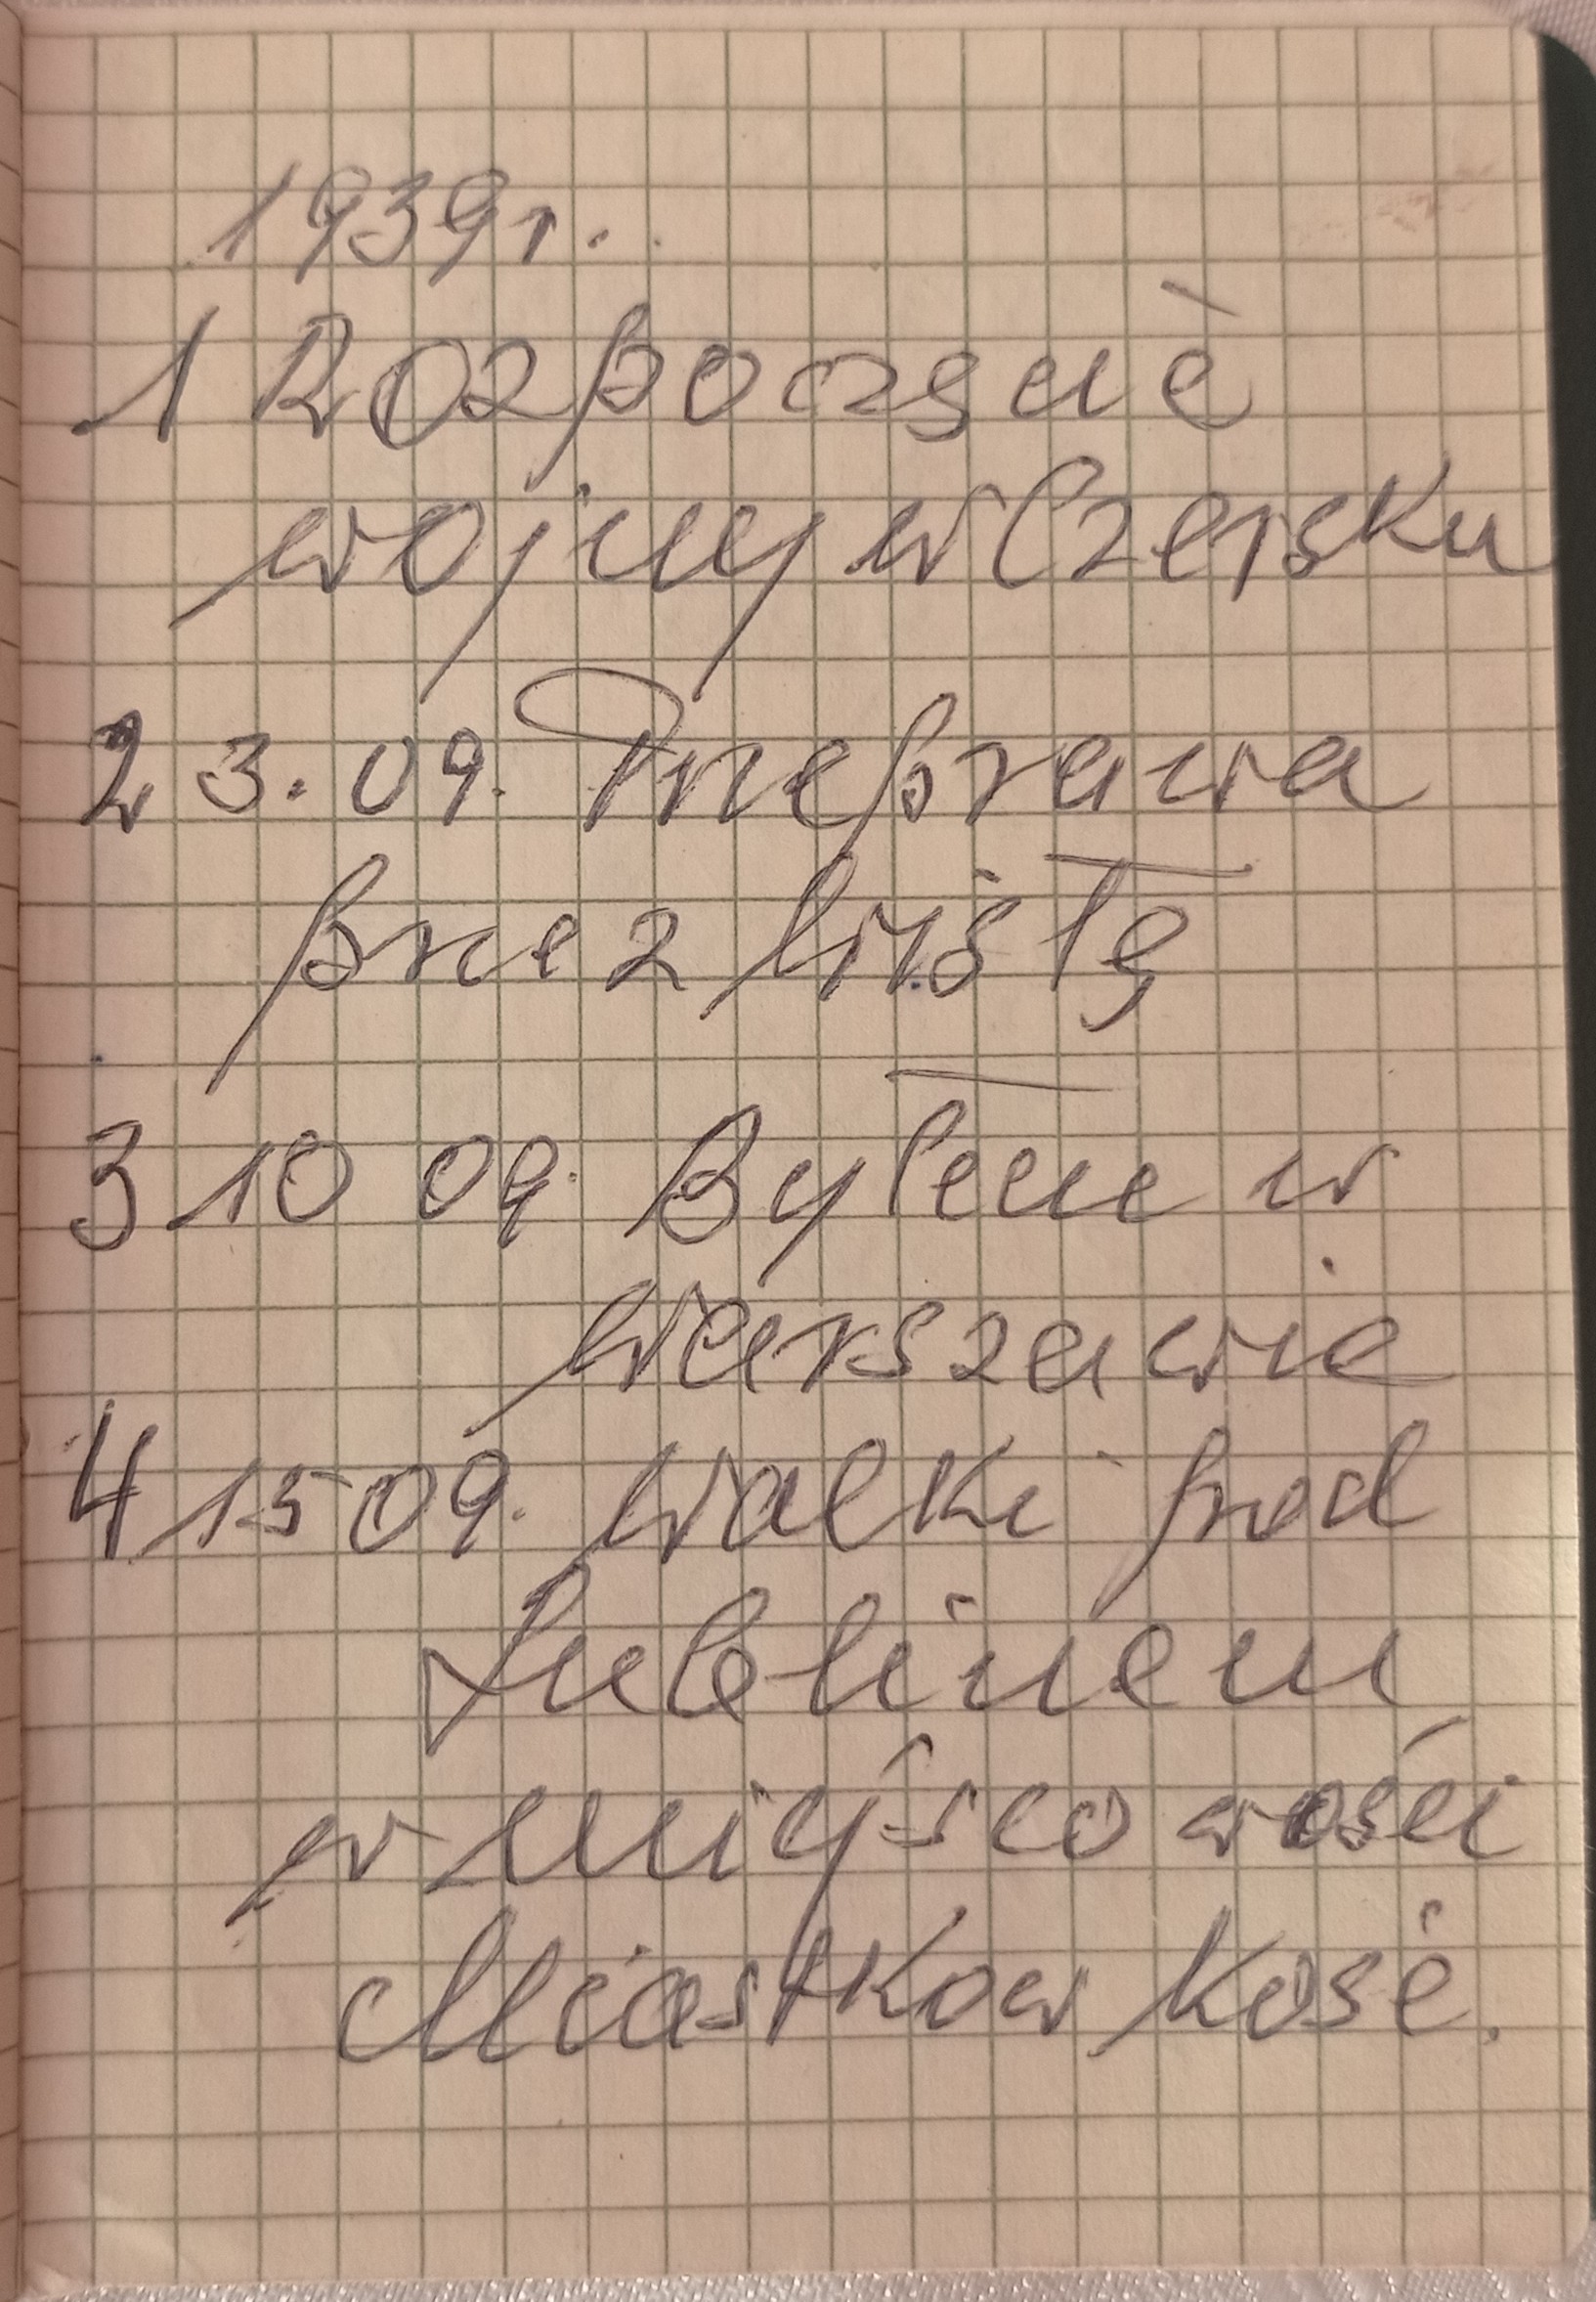 1939r.
1 Rozpoczęcie
wojny w Czersku
2 3.09. Przeprawa
przez Wisłę
3 10 09. Byłem w
Warszawie
4 15 09. Walki pod
Lublinem
w miejscowości
Miastków Kośc.